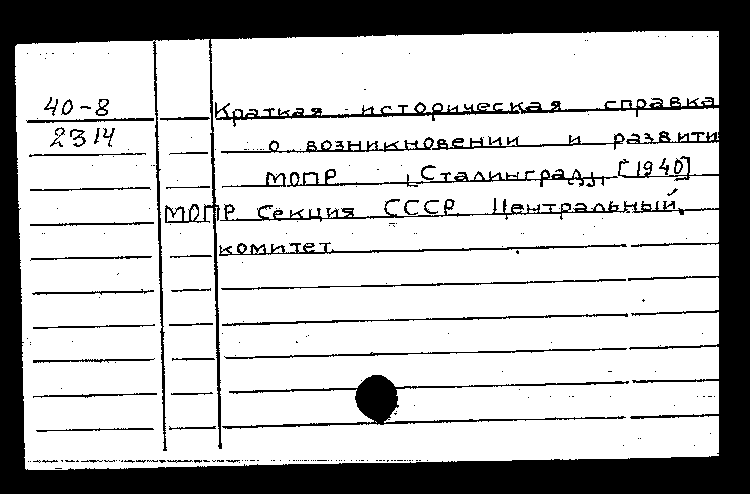 40-8 Краткая историческая справка
2314 о возникновении и развити
МОПР "Сталинград", [1940]
МОПР Секция СССР. Центральный
комитет.